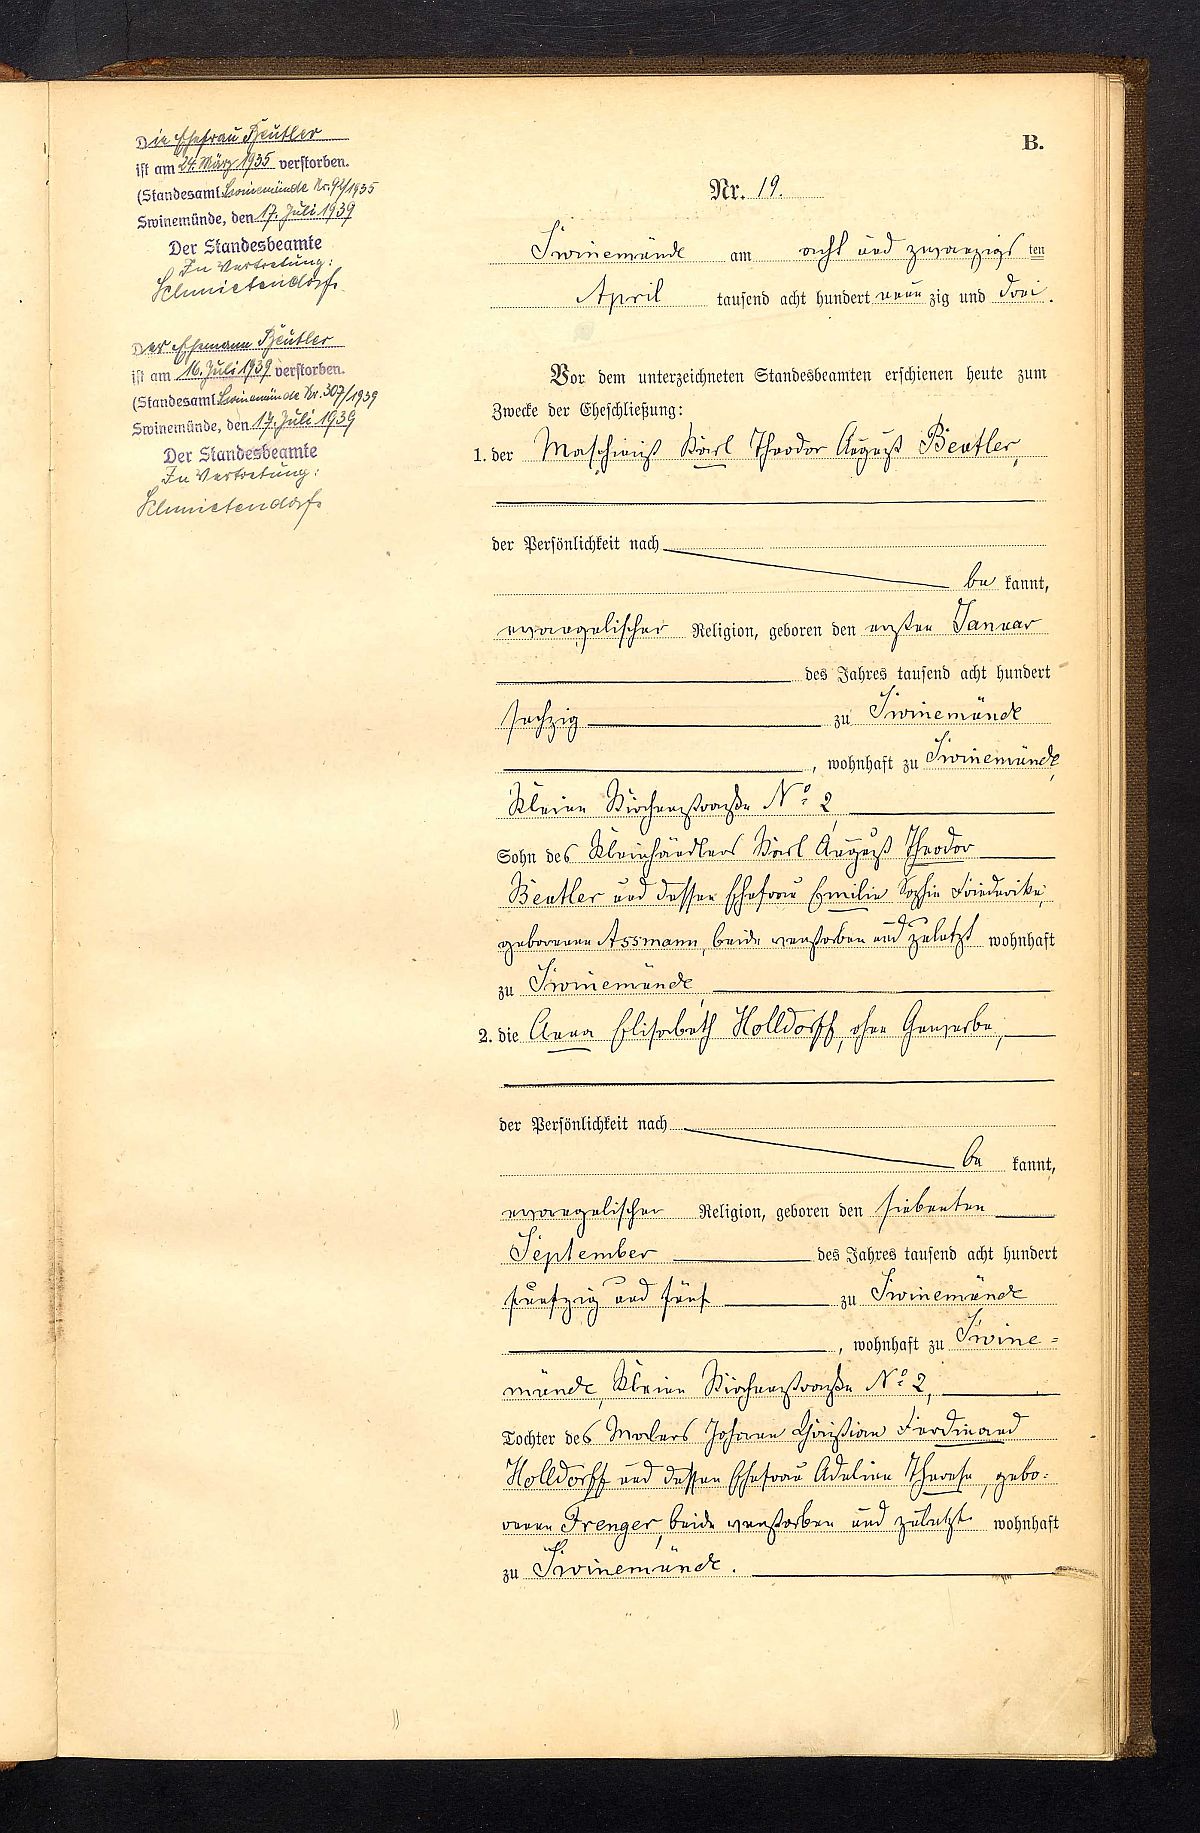 Die Ehefrau Beutler
ist am 24. März 1935 verstorben.
(Standesamt Swinemünde Nr. 92/1935
Swinemünde, den 17. Juli 1939
Der Standesbeamte
In Vertretung:
Schmietendorf.
Der Ehemann Beutler
ist am 16. Juli 1939 verstorben.
(Standesamt Swinemünde Nr. 307/1939
Swinemünde, den 17. Juli 1939
Der Standesbeamte
In Vertretung:
Schmietendorf.
B.
Nr. 19.
Swinemünde am acht und zwanzigsten
April tausend acht hundert neunzig und drei.
Vor dem unterzeichneten Standesbeamten erschienen heute zum
Zwecke der Eheschließung:
1. der Maschinist Karl Theodor August Beutler,
der Persönlichkeit nach
bekannt,
evangelischer Religion, geboren den ersten Januar
des Jahres tausend acht hundert
sechzig zu Swinemünde
, wohnhaft zu Swinemünde,
Kleine Kirchenstraße No. 2,
Sohn des Kleinhändlers Karl August Theodor
Beutler und dessen Ehefrau Emilie Sophie Friederike,
geborenen Assmann, beide verstorben und zuletzt wohnhaft
zu Swinemünde
2. die Anna Elisabeth Holldorff, ohne Gewerbe,
der Persönlichkeit nach
bekannt,
evangelischer Religion, geboren den siebenten
September des Jahres tausend acht hundert
fünfzig und fünf zu Swinemünde
, wohnhaft zu Swine=
münde, Kleine Kirchenstraße No. 2,
Tochter des Malers Johann Christian Ferdinand
Holldorff und dessen Ehefrau Adeline Therese, gebo=
renen Frenger, beide verstorben und zuletzt wohnhaft
zu Swinemünde.